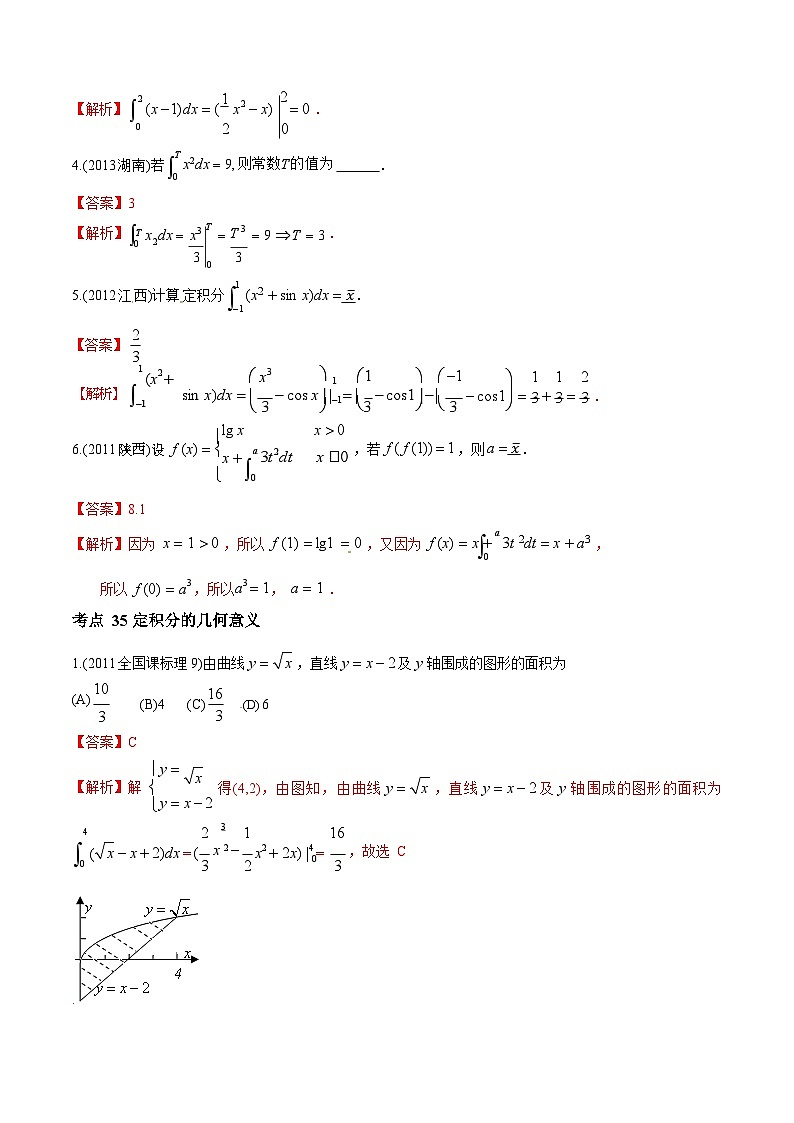 【解析】∫₀² (x−1)dx = (1/2 x² − x) |₀² = 0 .
4.(2013湖南)若∫₀ᵀ x²dx = 9, 则常数T的值为 ______.
【答案】3
【解析】∫₀ᵀ x₂dx = x³/3 |₀ᵀ = T³/3 = 9 ⇒T = 3 .
5.(2012江西)计算定积分∫₋₁¹ (x² + sin x)dx = x̄.
【答案】2/3
【解析】∫₋₁¹ (x²+ sin x)dx = (x³/3 − cos x) |₋₁¹ = (1/3 − cos1) − (−1/3 − cos1) = 1/3 + 1/3 = 2/3 .
6.(2011陕西)设 f (x) = { lg x x > 0
x + ∫₀ᵃ 3t²dt x □0 ，若 f ( f (1)) = 1，则a = x̄.
【答案】8.1
【解析】因为 x = 1 > 0 ，所以 f (1) = lg1 = 0 ，又因为 f(x) = x + ∫₀ᵃ 3t²dt = x + a³ ，
所以 f (0) = a³，所以a³ = 1， a = 1 .
考点 35 定积分的几何意义
1.(2011全国课标理9)由曲线 y = √x ，直线 y = x − 2 及 y 轴围成的图形的面积为
(A) 10/3 (B)4 (C) 16/3 (D) 6
【答案】C
【解析】解 { y = √x y = x − 2 得(4,2)，由图知，由曲线 y = √x ，直线 y = x − 2 及 y 轴围成的图形的面积为
∫₀⁴ (√x − x + 2)dx = (2/3 x^(3/2) − 1/2 x² + 2x) |₀⁴ = 16/3 ，故选 C
y y = √x
x
4
y = x − 2